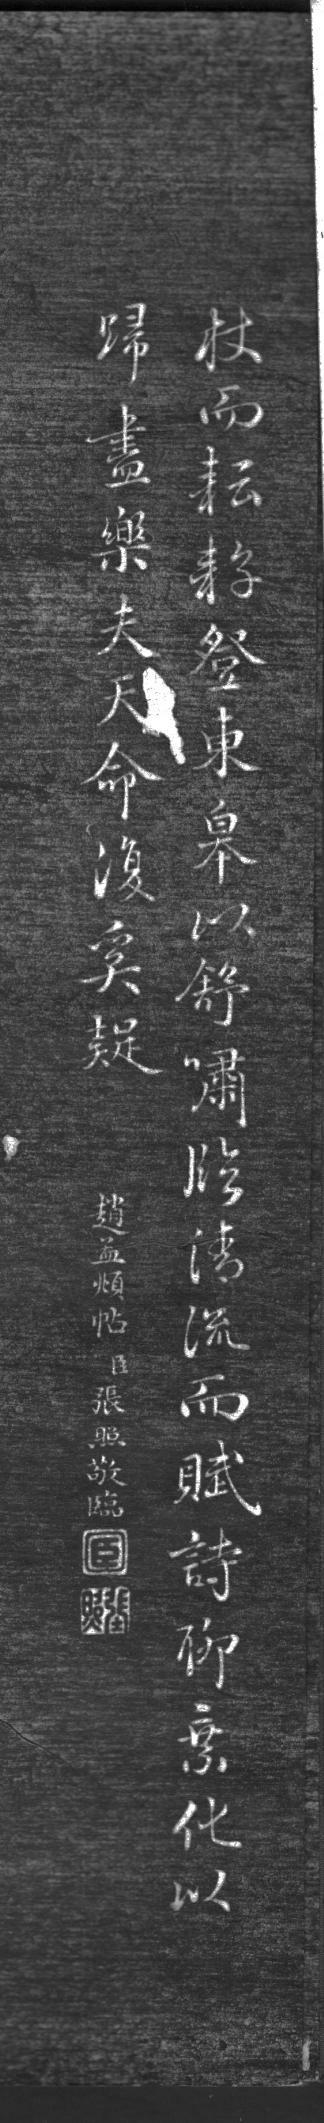 杖而耘耔登東皋以舒嘯臨清流而賦詩聊乘化以
歸盡樂夫天命復奚疑
趙孟頫帖 臣張照敬臨
臣